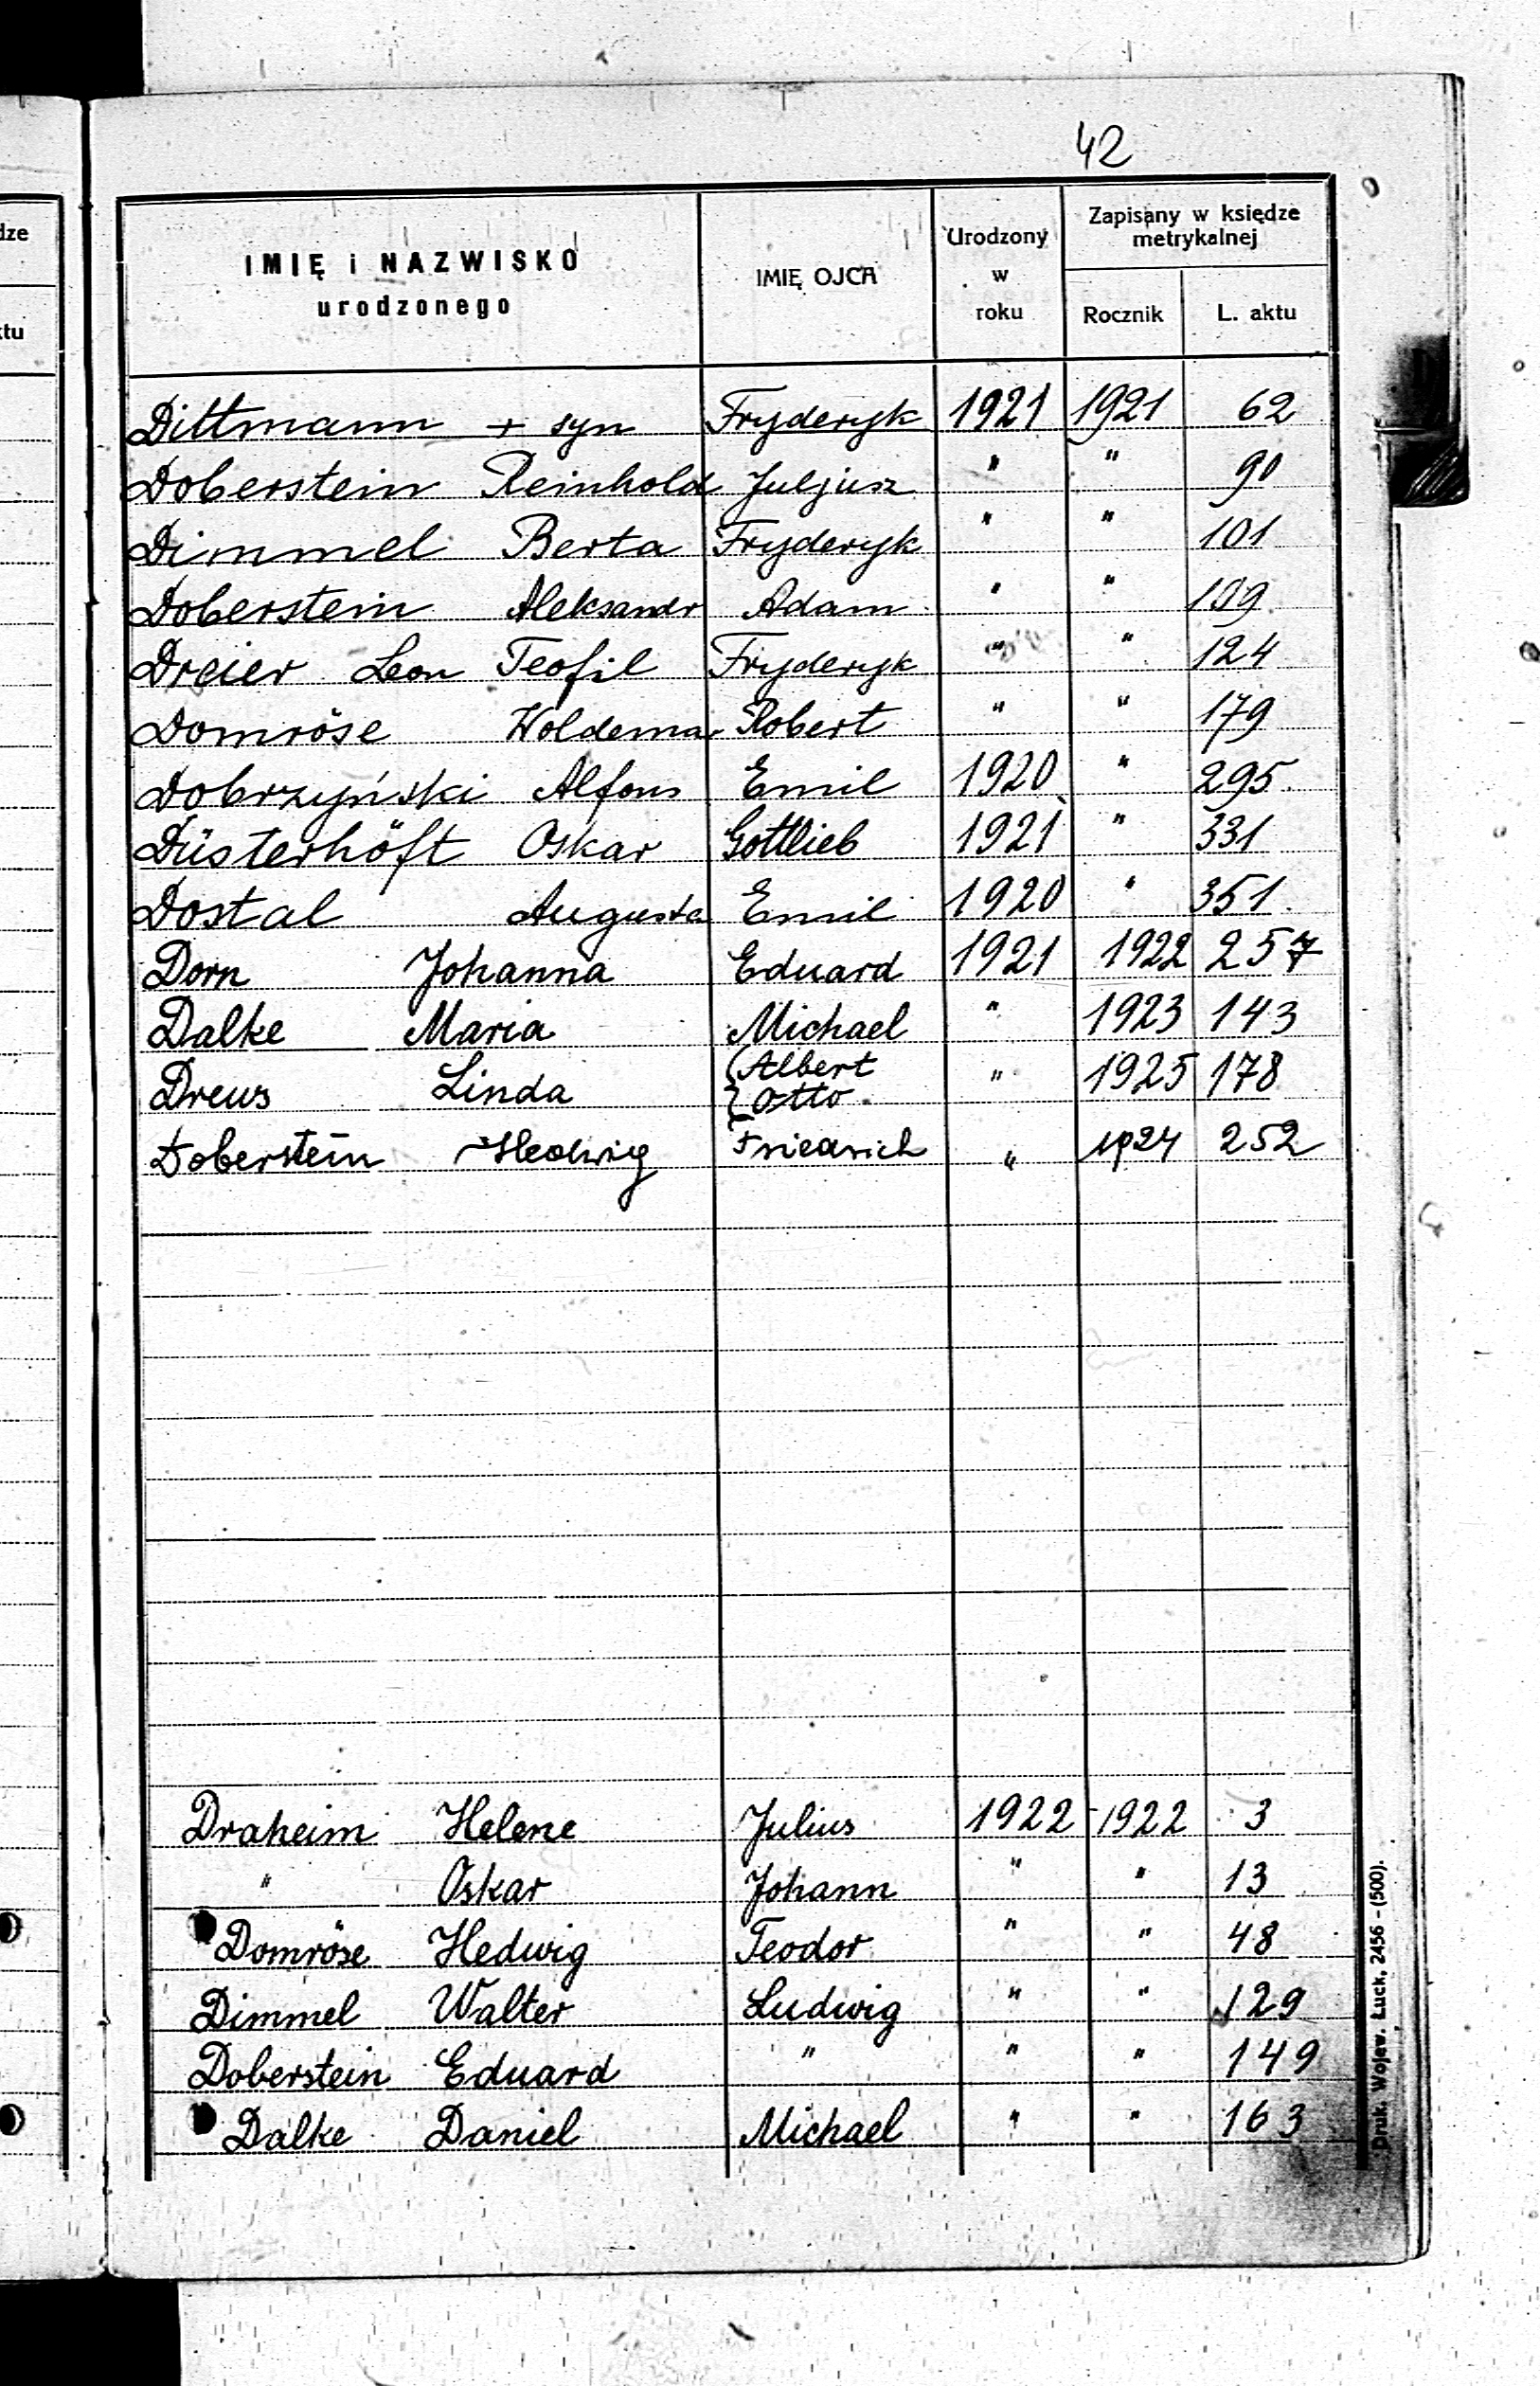 42
dze
ktu
IMIĘ i NAZWISKO urodzonego IMIĘ OJCA Urodzony w roku Zapisany w księdze metrykalnej
Rocznik L. aktu
Dittmann + syn Fryderyk 1921 1921 62
Doberstein Reinhold Juljusz " " 90
Dimmel Berta Fryderyk " " 101
Doberstein Aleksandr Adam " " 109
Dreier Leon Teofil Fryderyk " " 124
Domröse Woldemar Robert " " 179
Dobrzyński Alfons Emil 1920 " 295
Düsterhöft Oskar Gottlieb 1921 " 331
Dostal Augusta Emil 1920 " 351
Dorn Johanna Eduard 1921 1922 257
Dalke Maria Michael " 1923 143
Drews Linda {Albert Otto " 1925 178
Doberstein Hedwig Friedrich " 1924 252
Draheim Helene Julius 1922 1922 3
" Oskar Johann " " 13
Domröse Hedwig Teodor " " 48
Dimmel Walter Ludwig " " 129
Doberstein Eduard " " " 149
Dalke Daniel Michael " " 163
Druk. Wojew. Łuck, 2456 – (500).